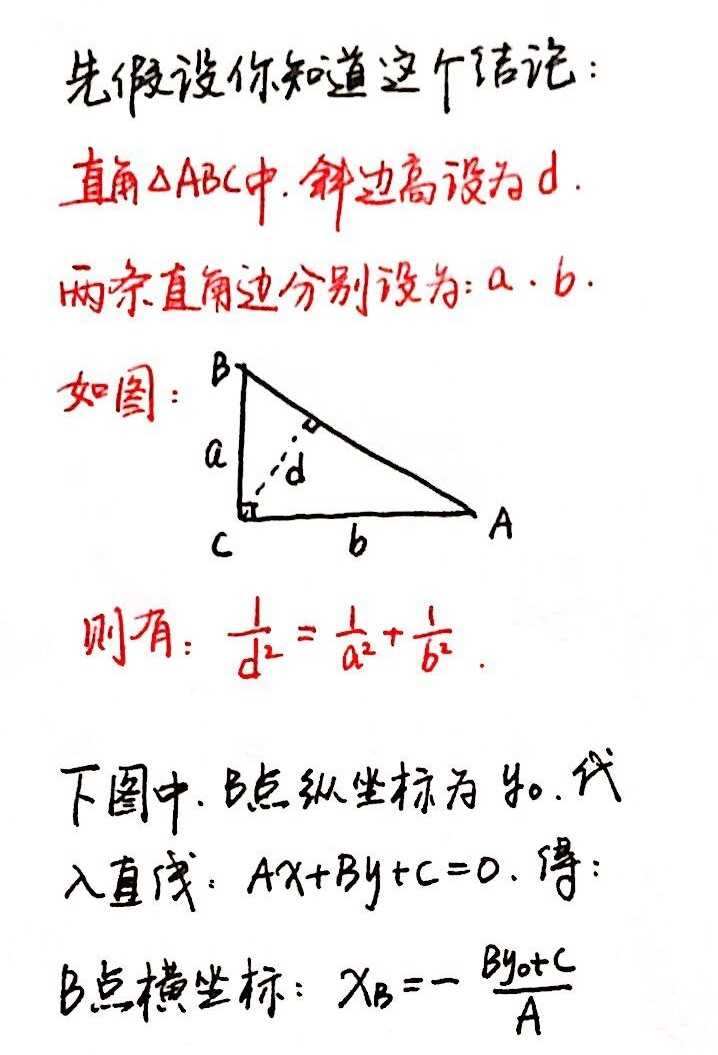 先假设你知道这个结论:
直角△ABC中.斜边高设为d.
两条直角边分别设为:a.b.
如图:
B
a
d
C
b
A
则有: 1/d² = 1/a² + 1/b².
下图中.B点纵坐标为y₀.代
入直线: Ax+By+C=0.得:
B点横坐标: x_B = - (By₀+C)/A